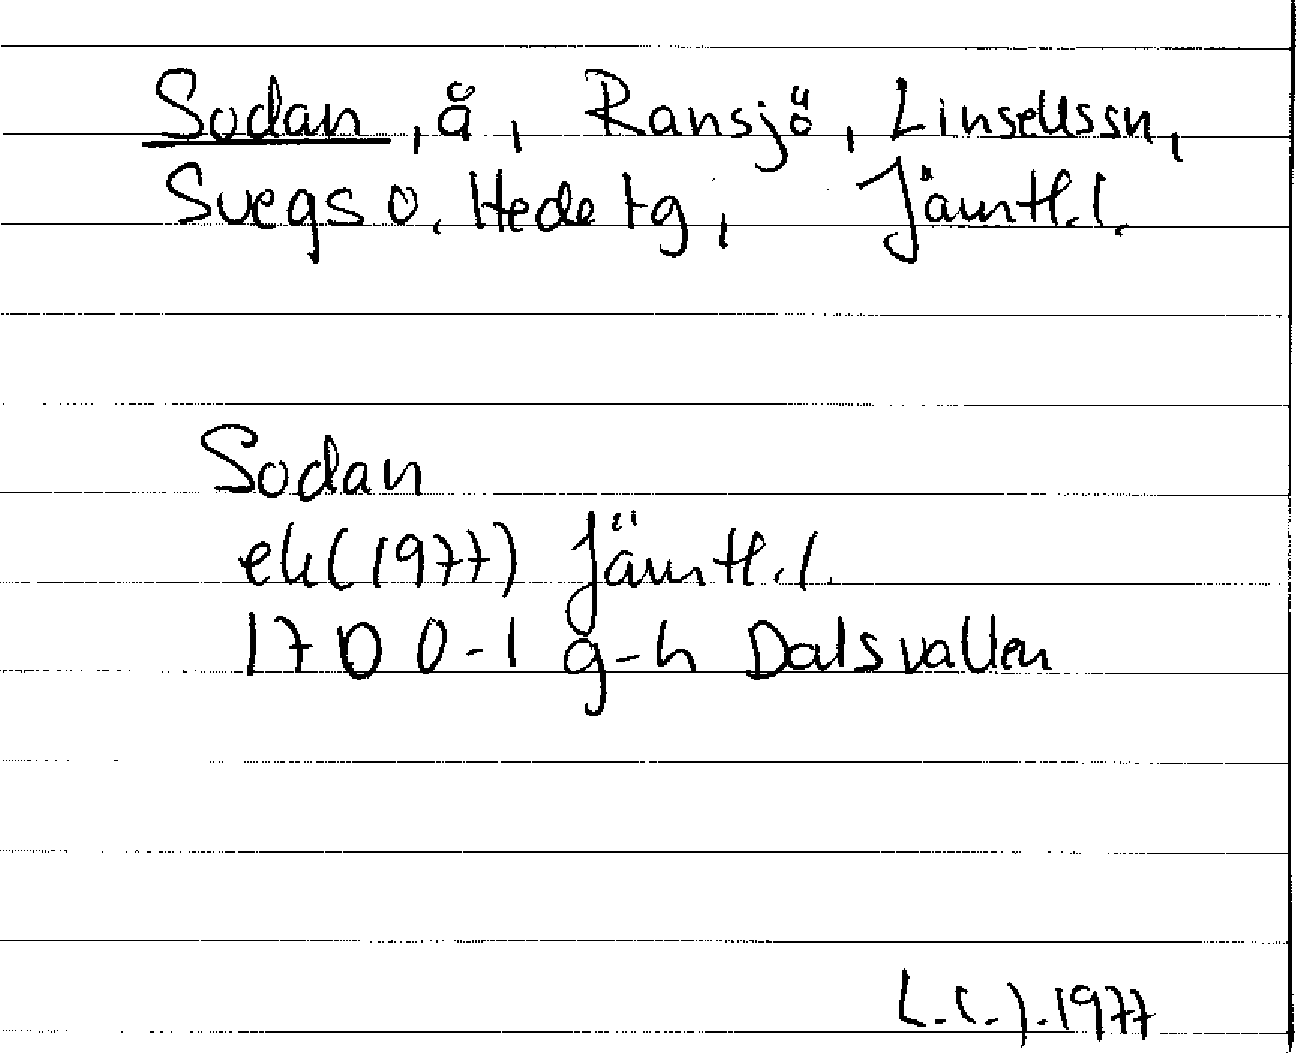 Sodan, å, Ransjö, Linsellssn,
Svegs o. Hede tg, Jämtl.l.
Sodan
ek (1977) Jämtl.l.
17D 0-1 g-h Dalsvallen
1977